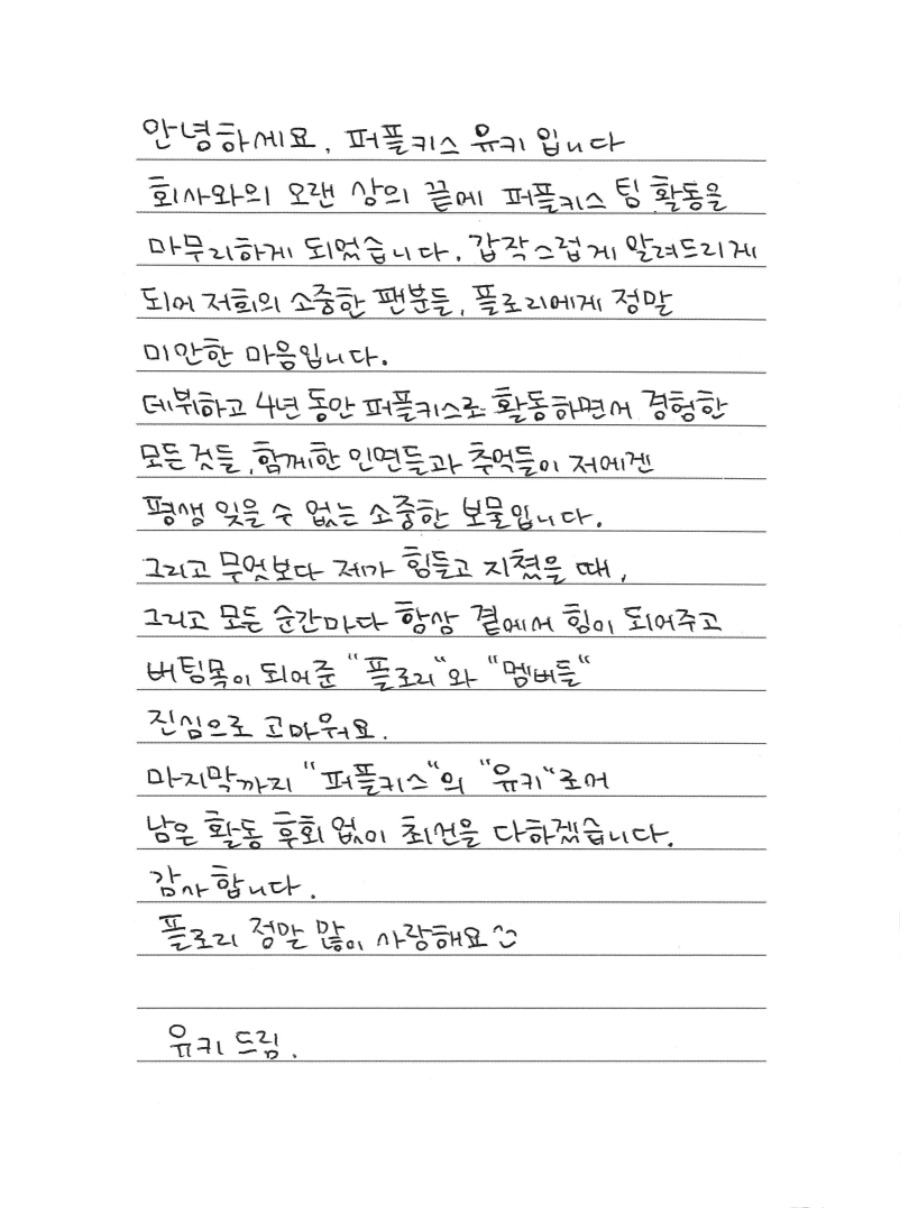 안녕하세요, 퍼플키스 유키입니다
회사와의 오랜 상의 끝에 퍼플키스 팀 활동을
마무리하게 되었습니다. 갑작스럽게 알려드리게
되어 저희의 소중한 팬분들, 플로리에게 정말
미안한 마음입니다.
데뷔하고 4년 동안 퍼플키스로 활동하면서 경험한
모든 것들, 함께한 인연들과 추억들이 저에겐
평생 잊을 수 없는 소중한 보물입니다.
그리고 무엇보다 제가 힘들고 지쳤을 때,
그리고 모든 순간마다 항상 곁에서 힘이 되어주고
버팀목이 되어준 "플로리"와 "멤버들"
진심으로 고마워요.
마지막까지 "퍼플키스"의 "유키"로서
남은 활동 후회 없이 최선을 다하겠습니다.
감사합니다.
플로리 정말 많이 사랑해요
유키 드림.